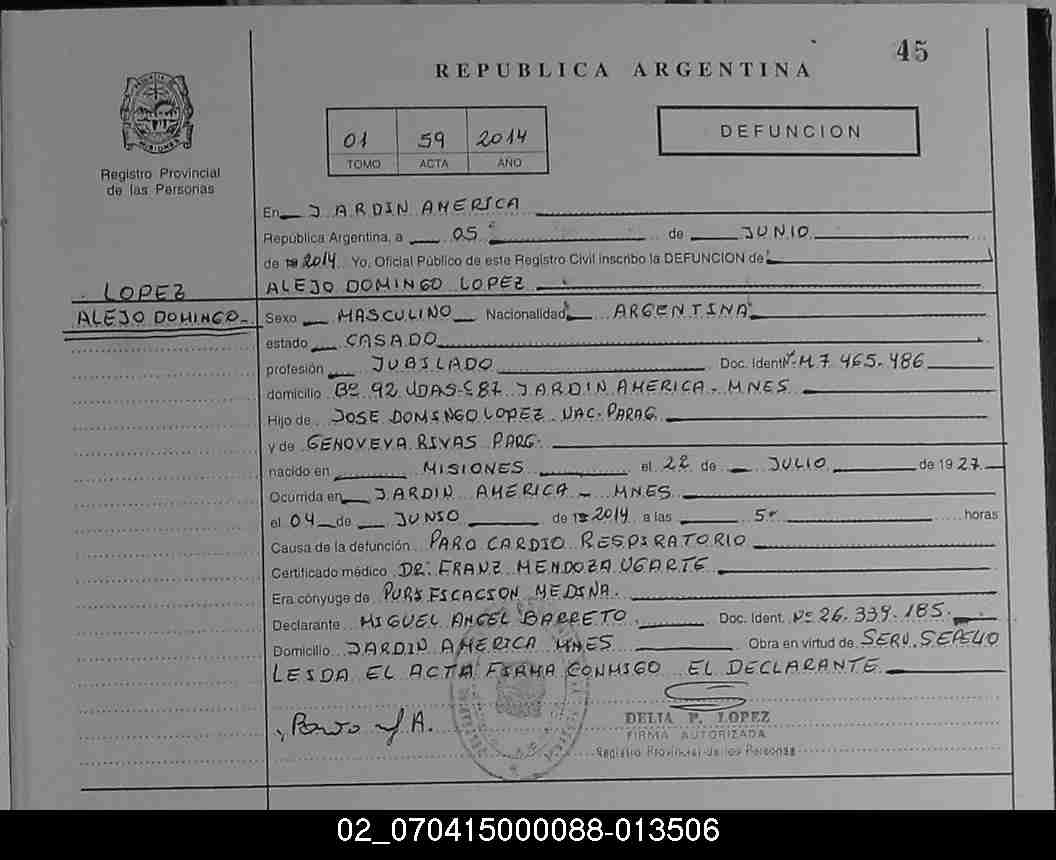 45
REPUBLICA ARGENTINA
01 59 2014
TOMO ACTA AÑO
DEFUNCION
MISIONES
Registro Provincial
de las Personas
LOPEZ
ALEJO DOMINGO
En JARDIN AMERICA
República Argentina, a 05 de JUNIO
de 2014 Yo, Oficial Público de este Registro Civil inscribo la DEFUNCION de
ALEJO DOMINGO LOPEZ
Sexo MASCULINO Nacionalidad ARGENTINA
estado CASADO
profesión JUBILADO Doc. Ident. M 7.465.486
domicilio Bº 92 VDAS-C87 JARDIN AMERICA - MNES
Hijo de JOSE DOMINGO LOPEZ NAC. PARAG.
y de GENOVEVA RIVAS PARG.
nacido en MISIONES el 22 de JULIO de 1927
Ocurrida en JARDIN AMERICA - MNES
el 04 de JUNIO de 2014 a las 5- horas
Causa de la defunción PARO CARDIO RESPIRATORIO
Certificado médico DR. FRANZ MENDOZA UGARTE
Era cónyuge de PURIFICACION MEDINA.
Declarante MIGUEL ANGEL BARRETO Doc. Ident. Nº 26.339.185.
Domicilio JARDIN AMERICA MNES Obra en virtud de SERV. SEPELIO
LEIDA EL ACTA FIRMA CONMIGO EL DECLARANTE
DELIA P. LOPEZ
FIRMA AUTORIZADA
Registro Provincial de las Personas
02_070415000088-013506